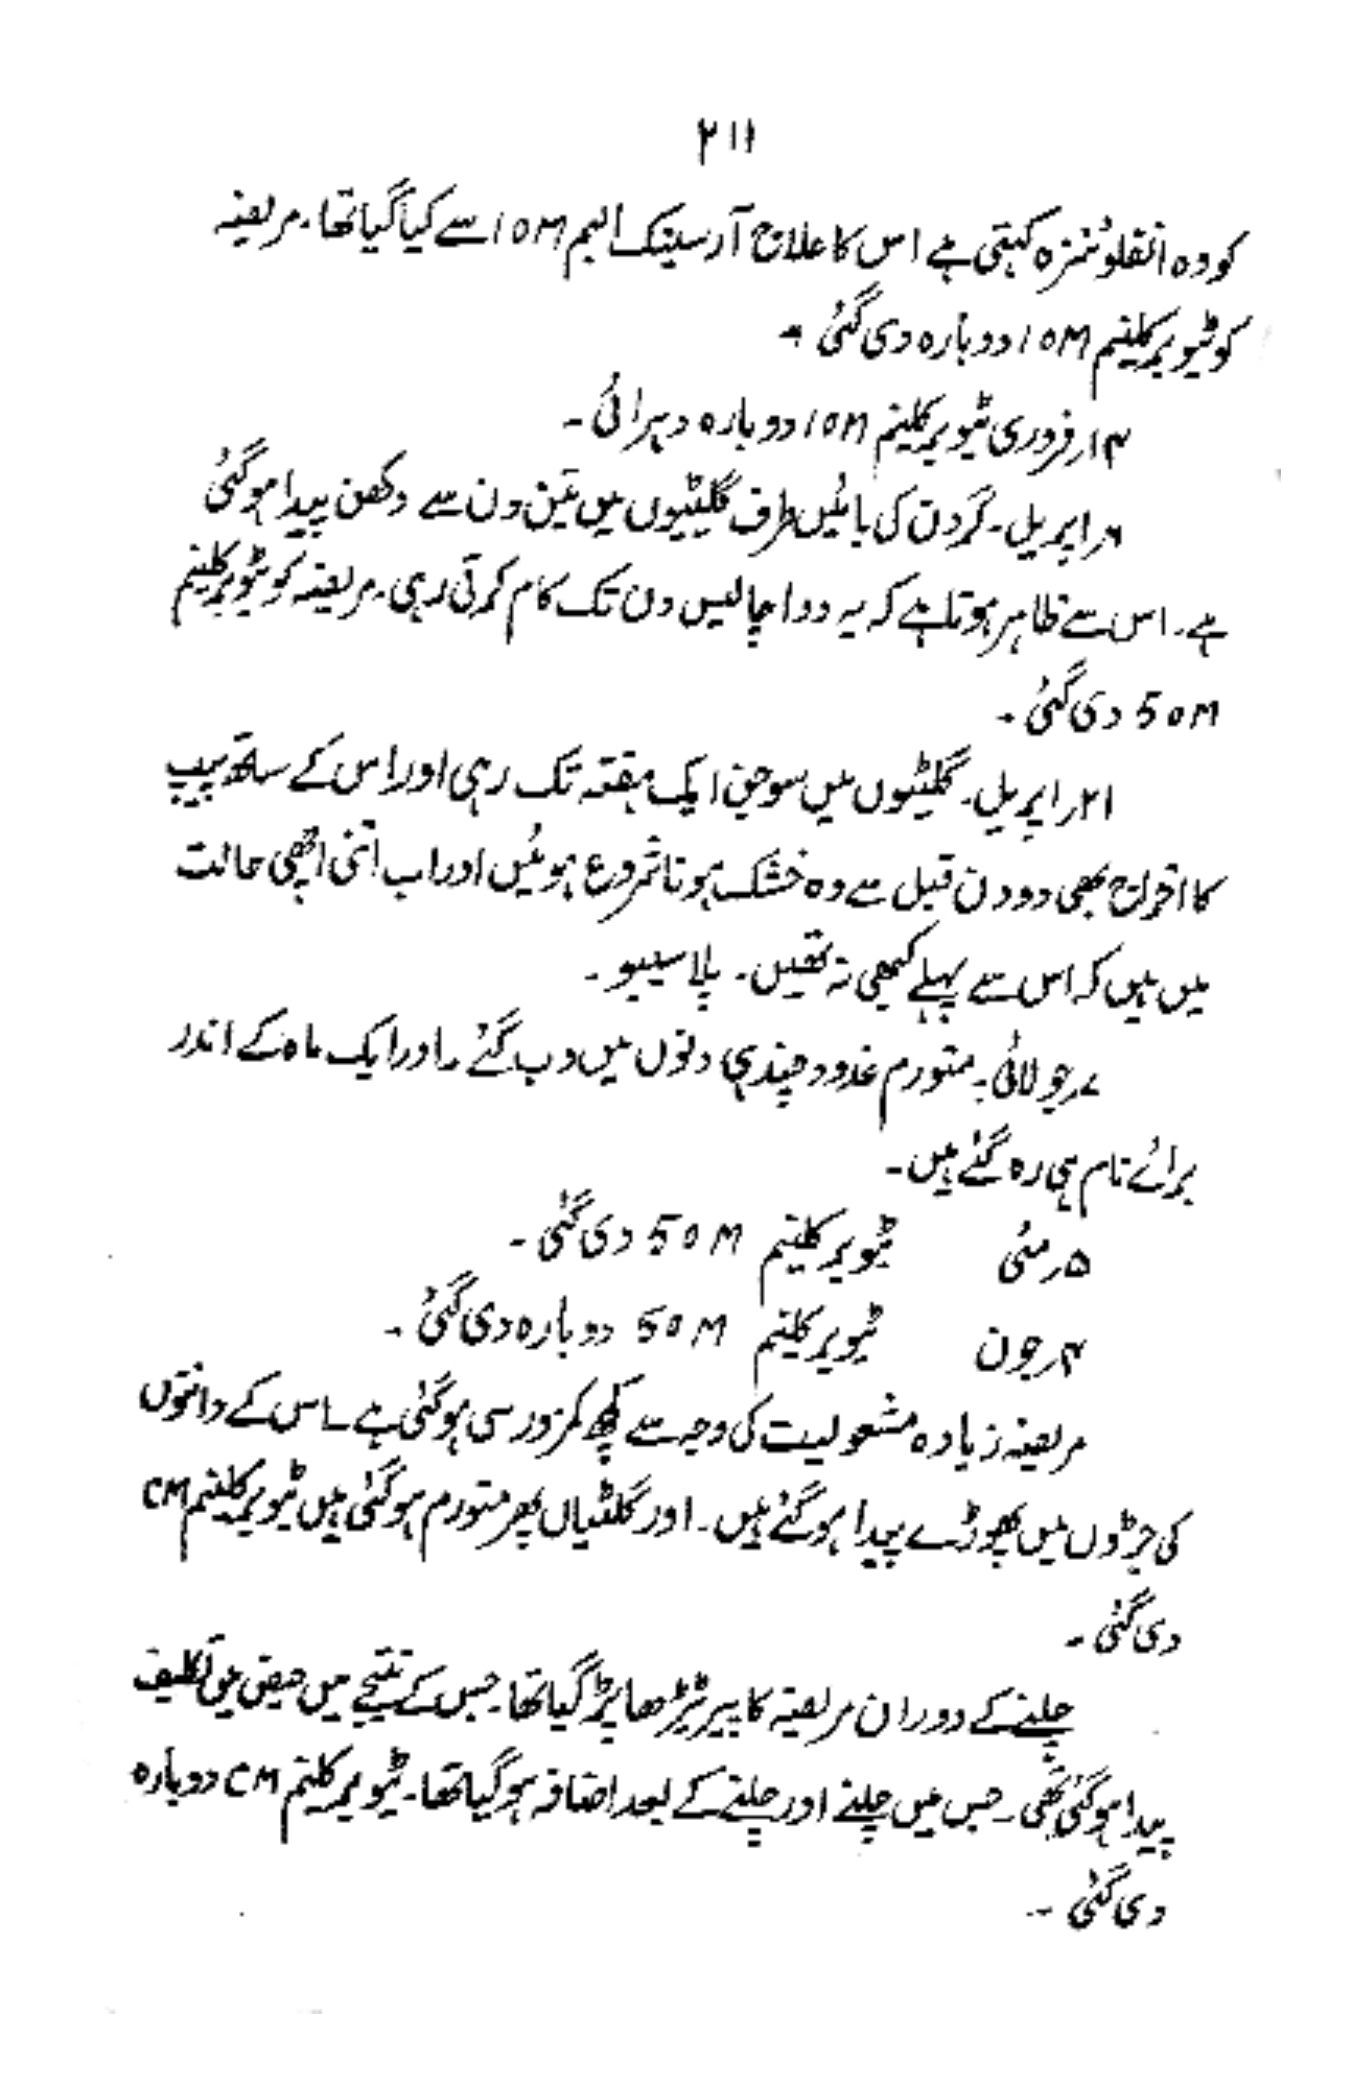 ۲۱۱
کو وہ انفلوئنزہ کہتی ہے اس کا علاج آرسینک البم 10M سے کیا گیا تھا۔ مریضہ
کو ٹیوبرکلینم 10M دوبارہ دی گئی۔
۱۴؍فروری ٹیوبرکلینم 10M دوبارہ دہرائی۔
۶؍اپریل۔ گردن کی بائیں طرف گلیٹیوں میں تین دن سے دکھن پیدا ہوگئی
ہے۔ اس سے ظاہر ہوتا ہے کہ یہ دوا چالیس دن تک کام کرتی رہی۔ مریضہ کو ٹیوبرکلینم
50M دی گئی۔
۲۱؍اپریل۔ گلیٹوں میں سوجن ایک ہفتہ تک رہی اور اس کے ساتھ پیپ
کا اخراج بھی دو دن قبل سے وہ خشک ہونا شروع ہوئیں اور اب اتنی اچھی حالت
میں ہیں کہ اس سے پہلے کبھی نہ تھیں۔ پلاسیبو۔
۷؍جولائی۔ متورم غدود چند ہی دنوں میں دب گئے۔ اور ایک ماہ کے اندر
برائے نام ہی رہ گئے ہیں۔
۵؍مئی ٹیوبرکلینم 50M دی گئی۔
۴؍جون ٹیوبرکلینم 50M دوبارہ دی گئی۔
مریضہ زیادہ مشغولیت کی وجہ سے کچھ کمزور سی ہوگئی ہے۔ اس کے دانتوں
کی جڑوں میں پھوڑے پیدا ہوگئے ہیں۔ اور گلٹیاں پھر متورم ہوگئی ہیں ٹیوبرکلینم CM
دی گئی۔
چلنے کے دوران مریضہ کا پیر ٹیڑھا پڑ گیا تھا۔ جس کے نتیجے میں تکلیف
پیدا ہوگئی تھی۔ جس میں چلنے اور چلنے کے بعد اضافہ ہوگیا تھا۔ ٹیوبرکلینم CM دوبارہ
دی گئی۔